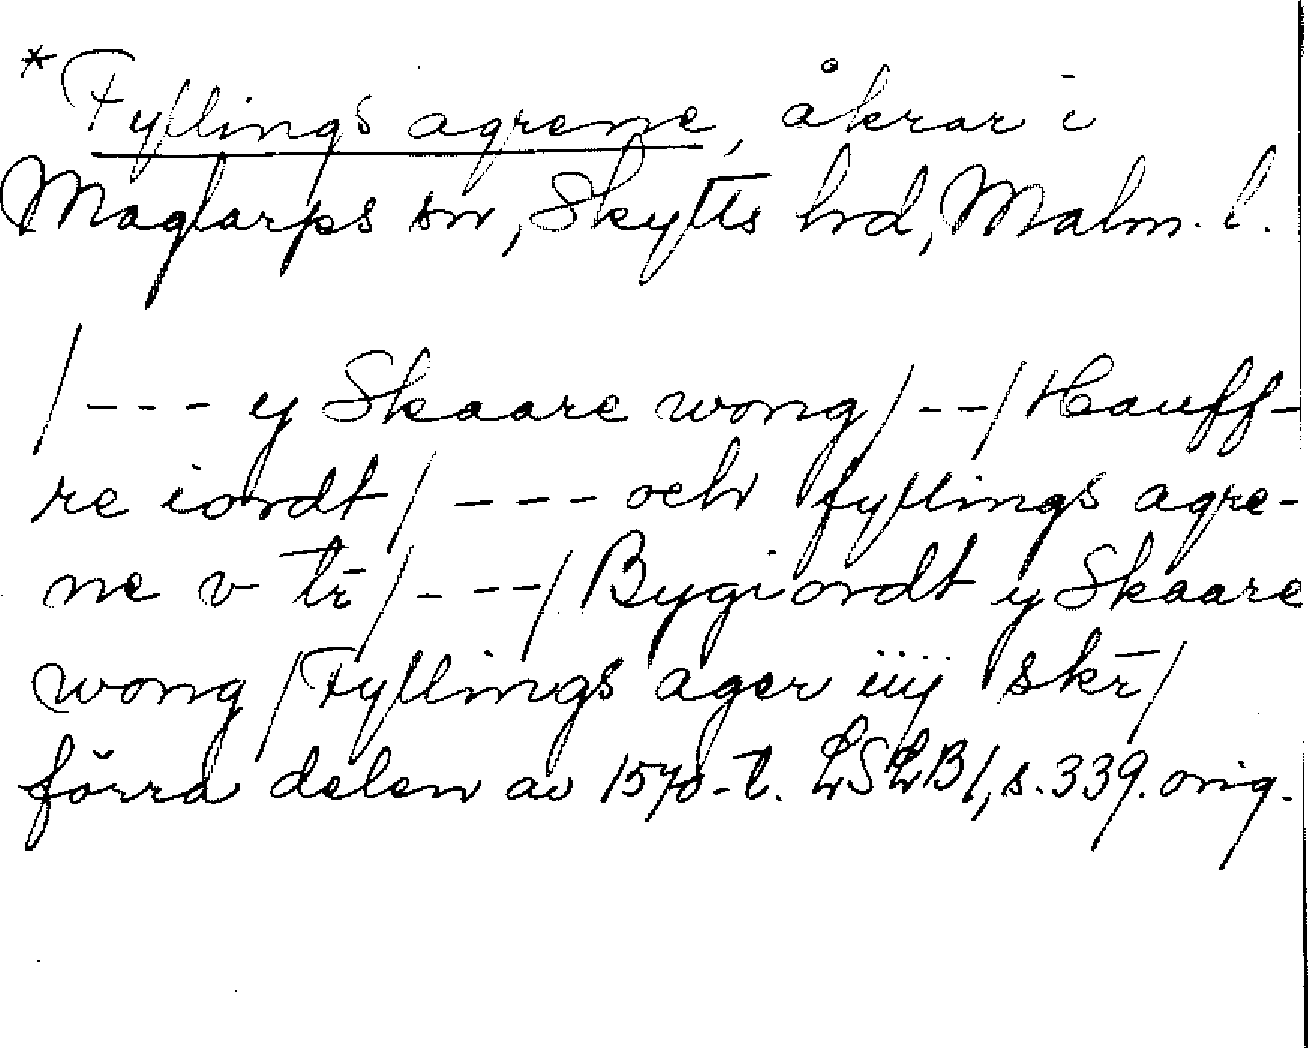 *Fyllings agrene, åkrar i
Maglarps sn, Skytts hd, Malm. l.
/--- y Skaare wong/--/Hauff-
re iordt/ --- och fyllings agre-
ne v tr̄/---/Bygiordt y Skaare
wong/Fyllings ager iiij skr̄/
förra delen av 1570-t. LSLB1, s. 339. orig.